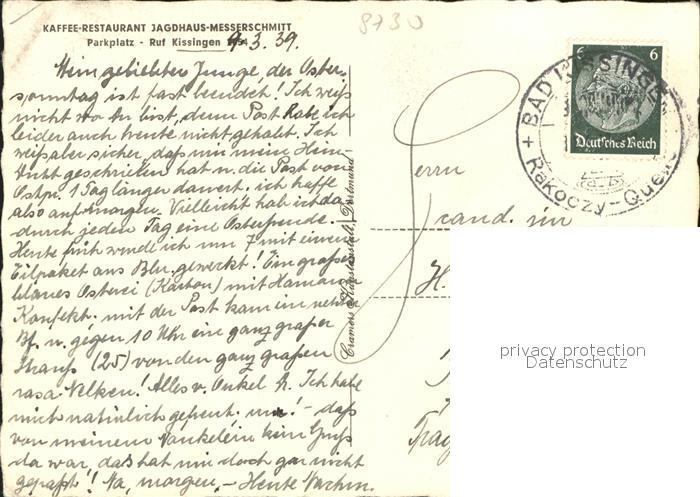 KAFFEE-RESTAURANT JAGDHAUS-MESSERSCHMITT
Parkplatz - Ruf Kissingen
9.3.39.
8730
Mein geliebter Junge, der Oster-
sonntag ist fast beendet! Ich weiß
nicht wo Du bist, denn Post habe ich
leider auch heute nicht gehabt. Ich
weiß aber sicher, daß mir mein
geschrieben hat u. die Post von
Ostpr. 1 Tag länger dauert. ich hoffe
also auf morgen. Vielleicht hab ich da-
durch jeden Tag eine Osterfreude.
Heute früh wurde ich um 7 mit einem
Eilpaket aus Bln. geweckt! Ein großes
blaues Osterei (Karton) mit
Konfekt. mit der Post kam ein netter
Bf. u. gegen 10 Uhr ein ganz großer
Strauß (25) von den ganz großen
rosa Nelken! Alles v. Onkel H. Ich habe
mich natürlich gefreut. nur! - daß
von meinem kein Gruß
da war, das hat mir doch gar nicht
gepaßt! Na, morgen. - Heute
Cramers Kunstanstalt, Dortmund
Herrn
cand.
H.
6 6
Deutsches Reich
+ BAD KISSINGEN
Rakoczy-Quelle
privacy protection
Datenschutz